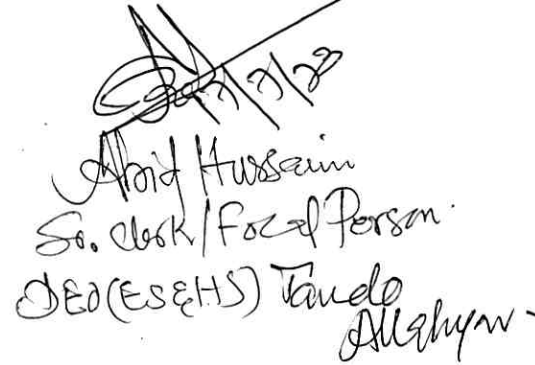 Abid Hussain
Sr. Clerk/Focal Person.
DEO(ES&HS) Tando
Allahyar.